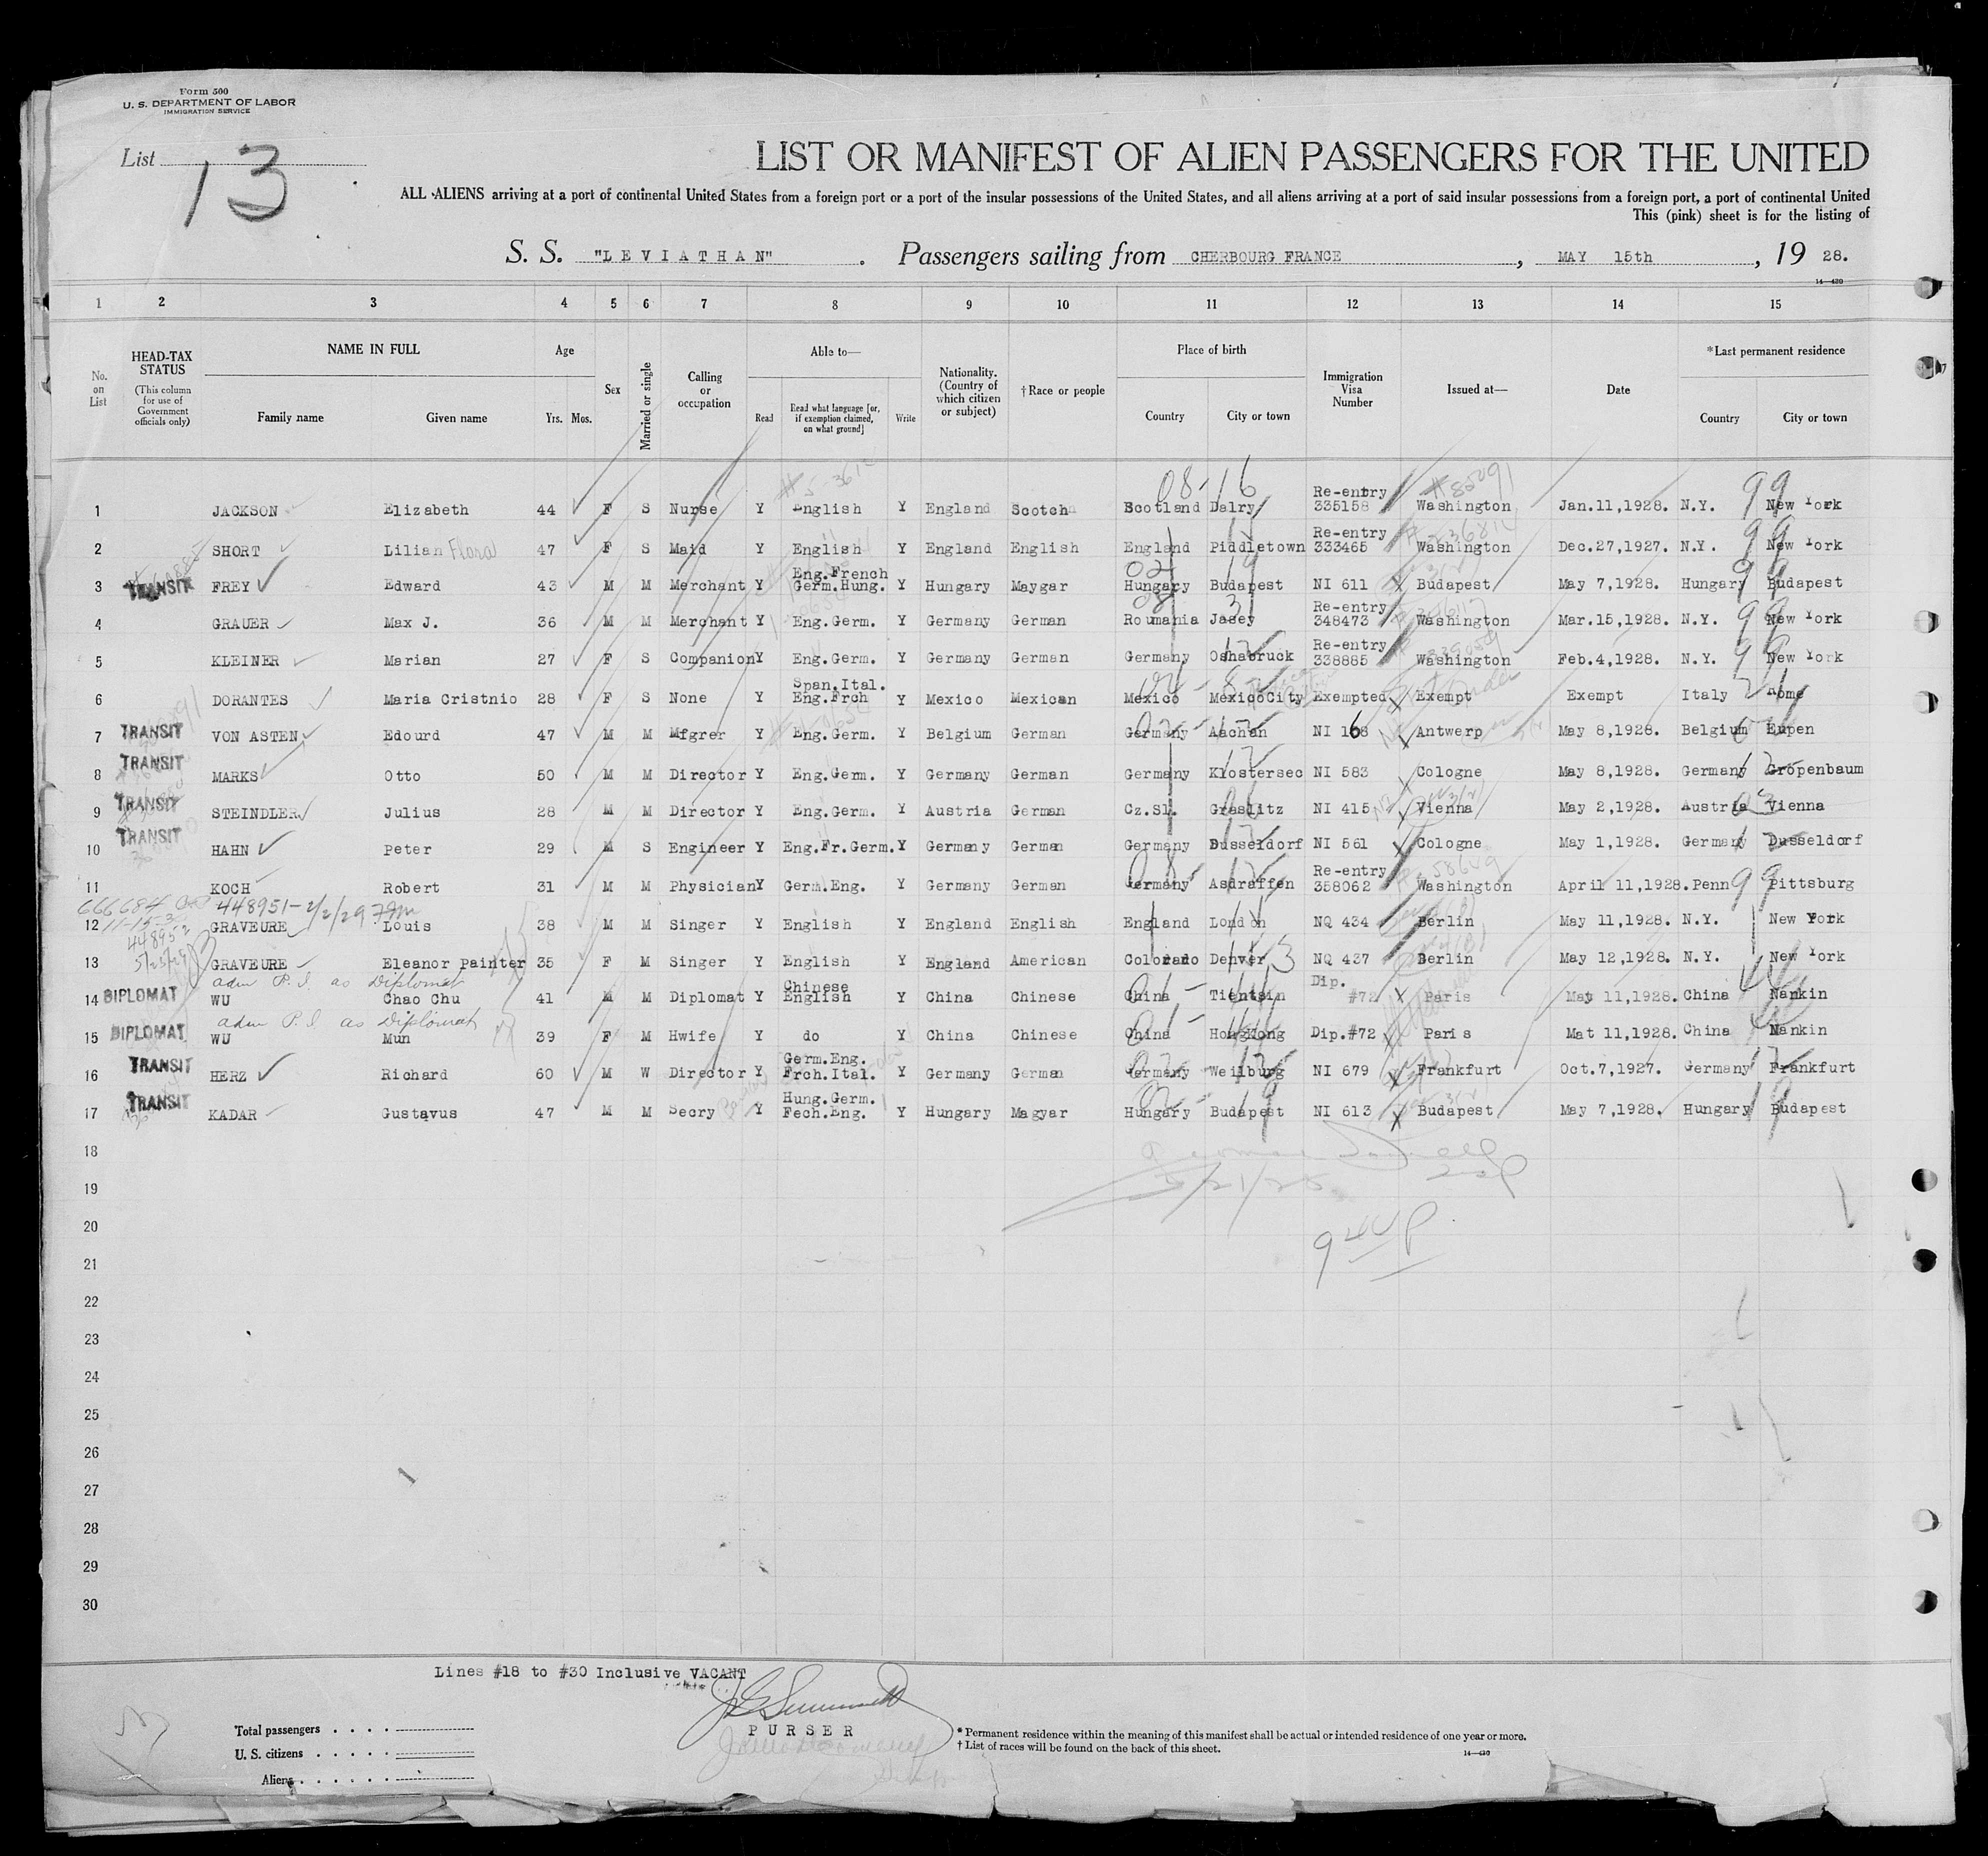 Form 500
U. S. DEPARTMENT OF LABOR
IMMIGRATION SERVICE
List 13
LIST OR MANIFEST OF ALIEN PASSENGERS FOR THE UNITED
ALL ALIENS arriving at a port of continental United States from a foreign port or a port of the insular possessions of the United States, and all aliens arriving at a port of said insular possessions from a foreign port, a port of continental United
This (pink) sheet is for the listing of
S. S. "LEVIATHAN". Passengers sailing from CHERBOURG FRANCE, MAY 15th, 19 28.
14—420
1 2 3 4 5 6 7 8 9 10 11 12 13 14 15
No. on List
HEAD-TAX STATUS (This column for use of Government officials only)
NAME IN FULL Family name Given name
Age Yrs. Mos.
Sex
Married or single
Calling or occupation
Able to— Read Read what language [or, if exemption claimed, on what ground] Write
Nationality. (Country of which citizen or subject)
†Race or people
Place of birth Country City or town
Immigration Visa Number
Issued at—
Date
*Last permanent residence Country City or town
1 JACKSON Elizabeth 44 F S Nurse Y English Y England Scotch Scotland Dalry Re-entry 335158 Washington Jan.11,1928. N.Y. New York
2 SHORT Lilian Flora 47 F S Maid Y English Y England English England Piddletown Re-entry 333465 Washington Dec.27,1927. N.Y. New York
3 TRANSIT FREY Edward 43 M M Merchant Y Eng.French Germ.Hung. Y Hungary Maygar Hungary Budapest NI 611 Budapest May 7,1928. Hungary Budapest
4 GRAUER Max J. 36 M M Merchant Y Eng.Germ. Y Germany German Roumania Jassy Re-entry 348473 Washington Mar.15,1928. N.Y. New York
5 KLEINER Marian 27 F S Companion Y Eng.Germ. Y Germany German Germany Osnabruck Re-entry 338885 Washington Feb.4,1928. N.Y. New York
6 DORANTES Maria Cristnio 28 F S None Y Span.Ital. Eng.Frch Y Mexico Mexican Mexico MexicoCity Exempted Exempt Exempt Italy Rome
7 TRANSIT VON ASTEN Edourd 47 M M Mfgrer Y Eng.Germ. Y Belgium German Germany Aachan NI 168 Antwerp May 8,1928. Belgium Eupen
8 TRANSIT MARKS Otto 50 M M Director Y Eng.Germ. Y Germany German Germany Klostersec NI 583 Cologne May 8,1928. Germany Gropenbaum
9 TRANSIT STEINDLER Julius 28 M M Director Y Eng.Germ. Y Austria German Cz.Sl. Graslitz NI 415 Vienna May 2,1928. Austria Vienna
10 TRANSIT HAHN Peter 29 M S Engineer Y Eng.Fr.Germ. Y Germany German Germany Dusseldorf NI 561 Cologne May 1,1928. Germany Dusseldorf
11 KOCH Robert 31 M M Physician Y Germ.Eng. Y Germany German Germany Asdraffen Re-entry 358062 Washington April 11,1928. Penn Pittsburg
666684 448951-2/2/29
12 GRAVEURE Louis 38 M M Singer Y English Y England English England London NQ 434 Berlin May 11,1928. N.Y. New York
448952 5/23/29
13 GRAVEURE Eleanor Painter 35 F M Singer Y English Y England American Colorado Denver NQ 437 Berlin May 12,1928. N.Y. New York
adm P.I. as Diplomat
14 DIPLOMAT WU Chao Chu 41 M M Diplomat Y Chinese English Y China Chinese China Tientsin Dip. #72 Paris May 11,1928. China Nankin
adm P.I. as Diplomat
15 DIPLOMAT WU Mun 39 F M Hwife Y do Y China Chinese China HongKong Dip.#72 Paris Mat 11,1928. China Nankin
16 TRANSIT HERZ Richard 60 M W Director Y Germ.Eng. Frch.Ital. Y Germany German Germany Weilburg NI 679 Frankfurt Oct.7,1927. Germany Frankfurt
17 TRANSIT KADAR Gustavus 47 M M Secry Y Hung.Germ. Fech.Eng. Y Hungary Magyar Hungary Budapest NI 613 Budapest May 7,1928. Hungary Budapest
18
19
20
21
22
23
24
25
26
27
28
29
30
Lines #18 to #30 Inclusive VACANT
PURSER
Total passengers
U. S. citizens
Aliens
* Permanent residence within the meaning of this manifest shall be actual or intended residence of one year or more.
† List of races will be found on the back of this sheet.
14—420